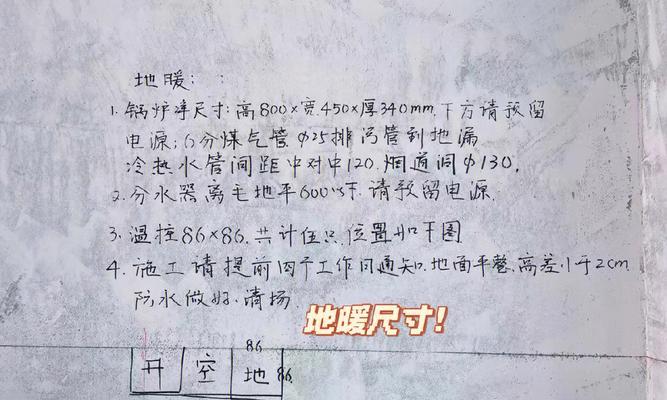 地暖：
1. 锅炉净尺寸：高800×宽450×厚340mm，下方请预留
电源；6分煤气管 Φ25排污管到地漏
冷热水管间距中对中120，烟道洞Φ130。
2. 分水器离毛地平600以下，请预留电源。
3. 温控86×86，共计伍只，位置如下图
4. 施工请提前四个工作日通知，地面平整，高差小于2cm
防水做好，清场.
地暖尺寸！
86
开 空 地 86